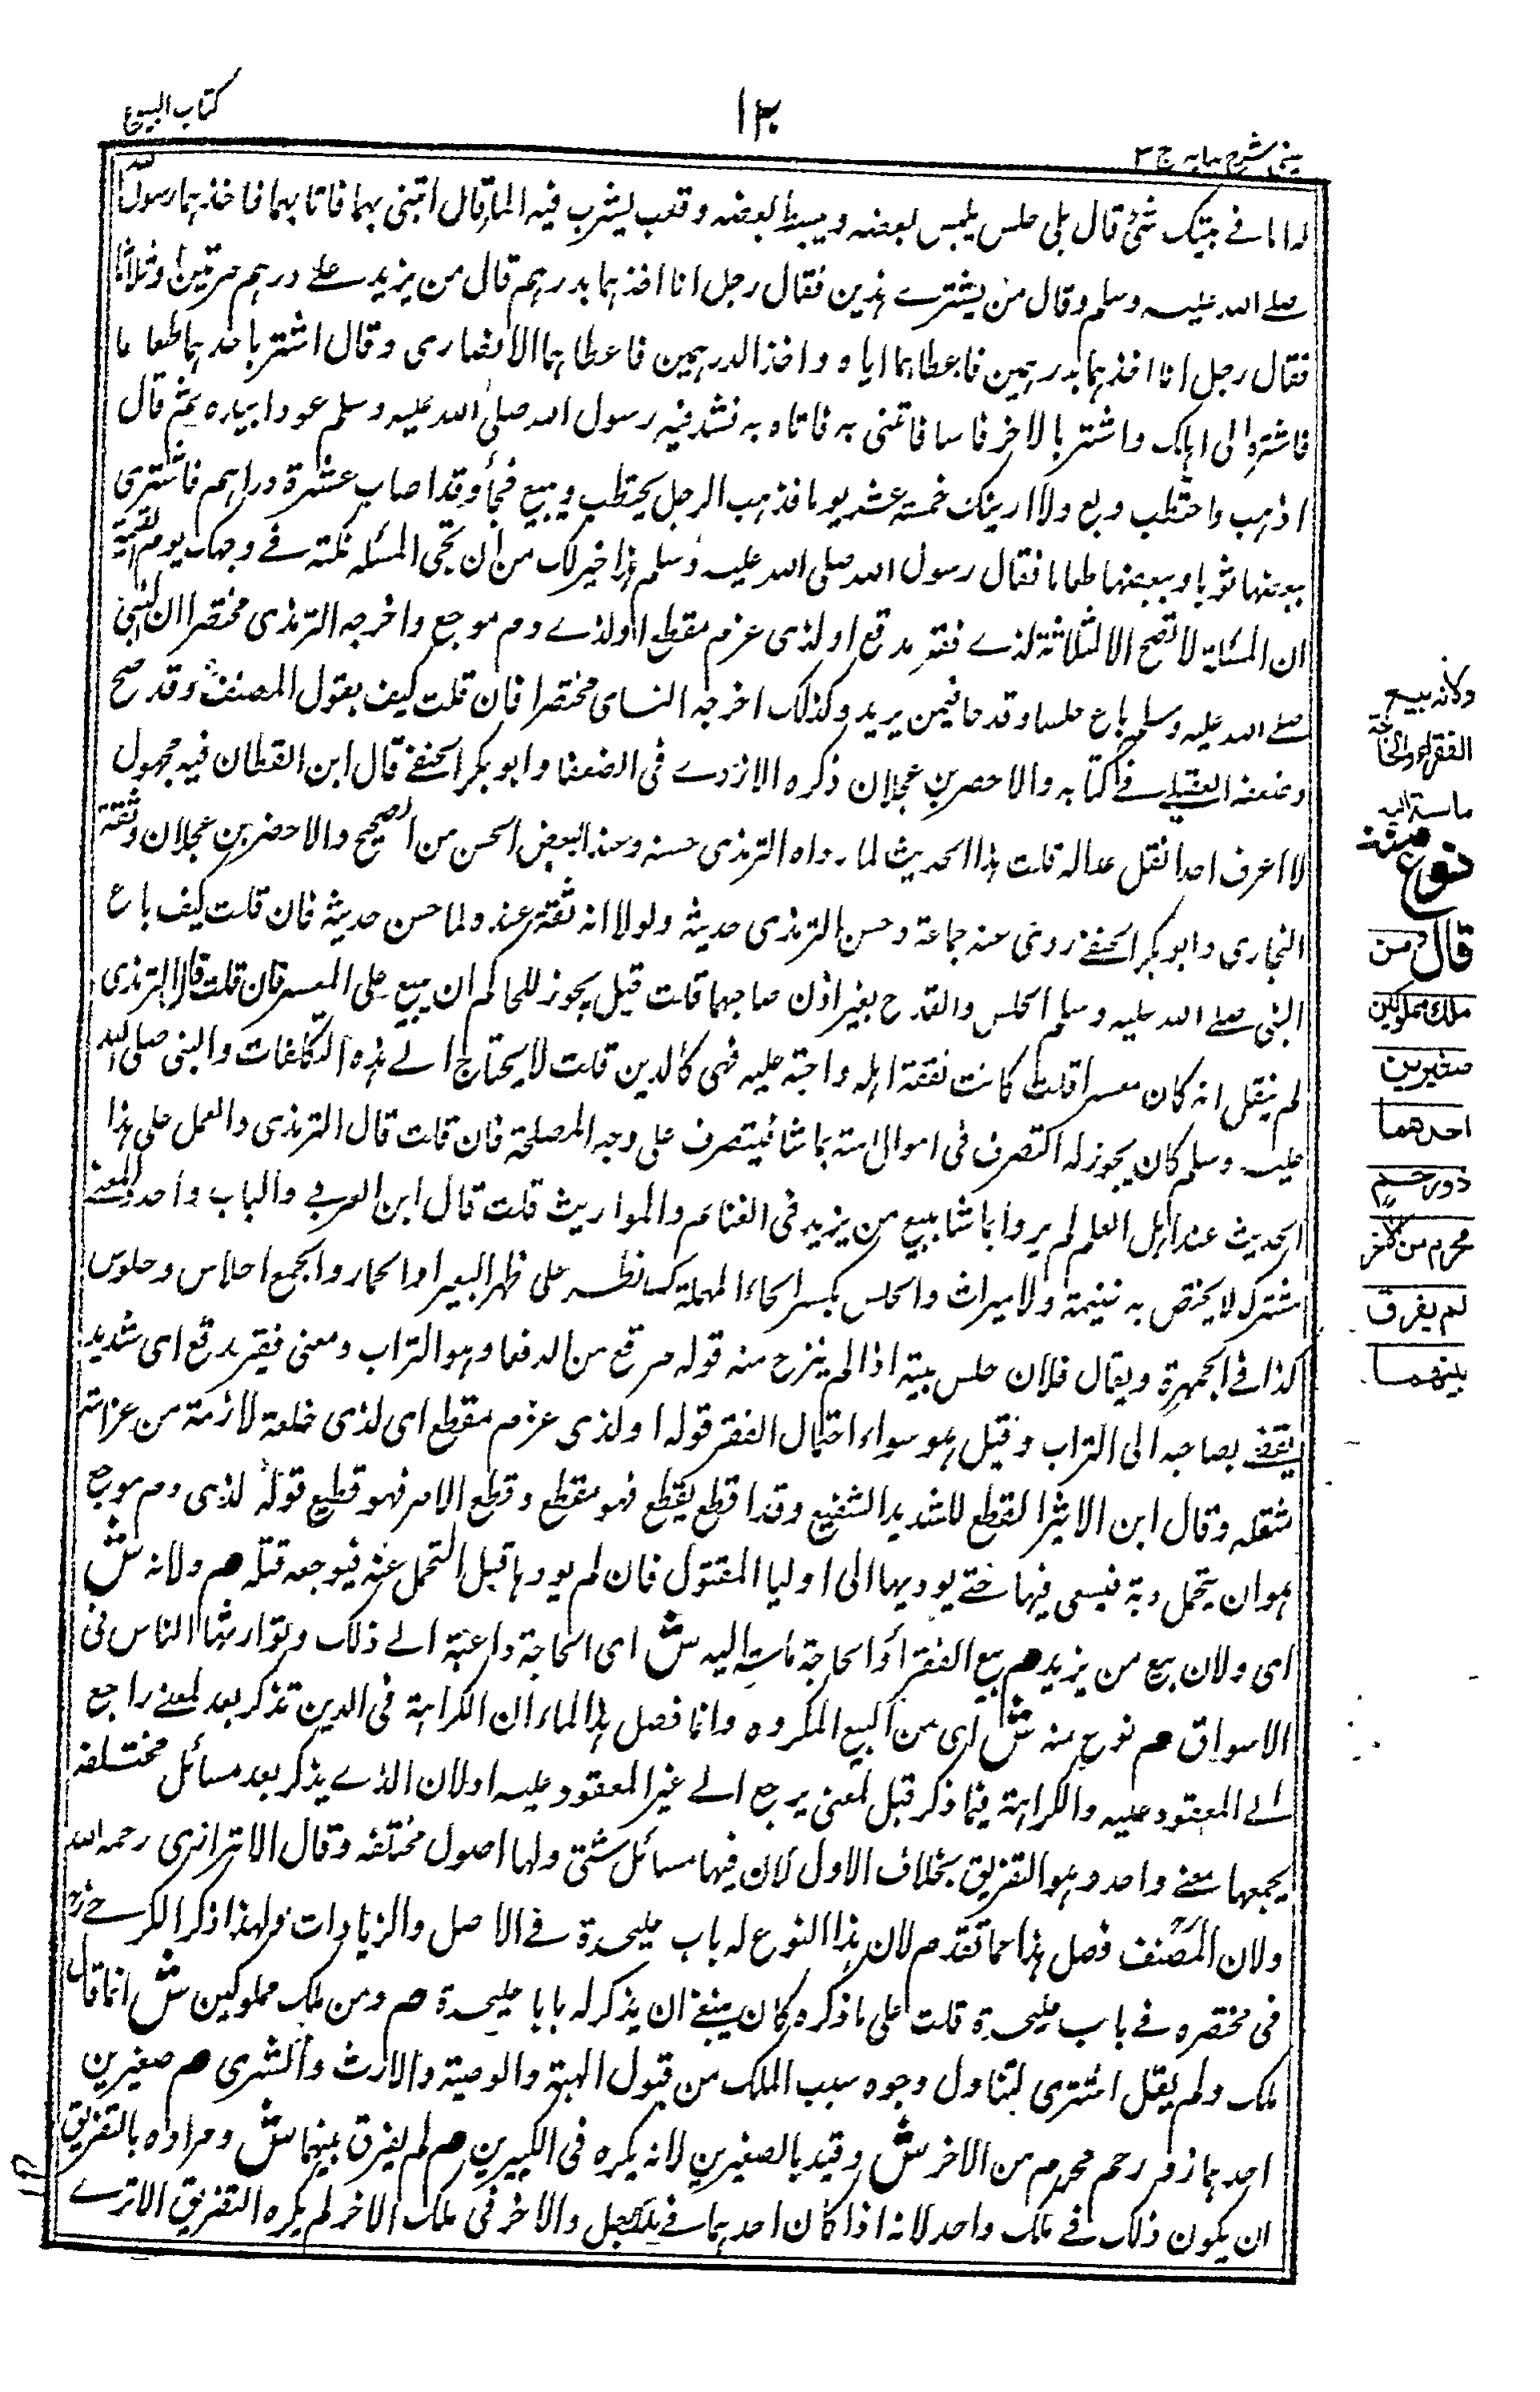 کتاب البیوع
١٣٠
عینی شرح ہدایہ ج ٣
لہ اما فے بیتک شئ قال بلی حلس یلبس بعضہ ویبسط بعضہ وقعب یشرب فیہ الماء قال ائتنی بہما فاتا بہما فاخذہما رسول اللہ
صلے اللہ علیہ وسلم وقال من یشترے ہذین فقال رجل انا اخذہما بدرہم قال من یزید علے درہم مرتین او ثلاثا
فقال رجل انا اخذہما بدرہمین فاعطاہما ایاہ واخذ الدرہمین فاعطاہما الانصاری وقال اشتر باحدہما طعاما
فاشترہ الی اہلک واشتر بالاخر فاسا فاتنی بہ فاتاہ بہ فشد فیہ رسول اللہ صلی اللہ علیہ وسلم عودا بیدہ ثم قال
اذہب واحتطب وبع ولا ارینک خمسۃ عشر یوما فذہب الرجل یحتطب ویبیع فجاء وقد اصاب عشرۃ دراہم فاشتری
ببعضہا ثوبا وببعضہا طعاما فقال رسول اللہ صلی اللہ علیہ وسلم ہذا خیر لک من ان تجی المسئلہ نکتہ فے وجہک یوم القیمۃ
ان المسئلۃ لا تصح الا لثلاثۃ لذے فقر مدقع او لذی غرم مقطع او لذے دم موجع واخرجہ الترمذی مختصرا ان النبی
صلے اللہ علیہ وسلم باع حلسا وقدحا فیمن یرید وکذلک اخرجہ النسای مختصرا فان قلت کیف یقول المصنف وقد صح
وضعفہ العقیلے فے کتابہ والاحضر بن عجلان ذکرہ الازدے فی الضعفا وابو بکر الحنفے قال ابن القطان فیہ مجہول
لا اعرف احدا نقل عدالہ قلت ہذا الحدیث لما رواہ الترمذی حسنہ وعند البعض الحسن من الصحیح والاحضر بن عجلان وثقۃ
البخاری وابو بکر الحنفے روی عنہ جماعۃ وحسن الترمذی حدیثہ ولولا انہ ثقۃ عندہ لما حسن حدیثہ فان قلت کیف باع
النبی صلے اللہ علیہ وسلم الحلس والقدح بغیر اذن صاحبہما قلت قیل یجوز للحاکم ان یبیع علی المعسر فان قلت قال الترمذی
لم ینقل انہ کان معسرا قلت کانت نفقۃ اہلہ واجبۃ علیہ فہی کالدین قلت لا یحتاج الے ہذہ التکلفات والنبی صلی اللہ
علیہ وسلم کان یجوز لہ التصرف فی اموال امتہ بما شا فیتصرف علی وجہ المصلحۃ فان قلت قال الترمذی والعمل علی ہذا
الحدیث عند اہل العلم لم یروا باشا ببیع من یزید فی الغنائم والمواریث قلت قال ابن العربے والباب واحد والمعنے
مشترک لا یختص بہ غنیمۃ ولا میراث والحلس بکسر الحاء المہملۃ کساء نظہر علی ظہر البعیر او الحمار والجمع احلاس وحلوس
کذا فے الجمہرۃ ویقال فلان حلس بیتہ اذا لم ینزح منہ قولہ مدقع من الدفعا وہو التراب ومعنی فقیر مدقع ای شدید
یفضے بصاحبہ الی التراب وقیل ہو سواء احتمال الفقر قولہ او لذی غرم مقطع ای لذی خلعۃ لازمۃ من غرامۃ
مثقلہ وقال ابن الاثیر المقطع الشدید الشنیع وقد اقطع یقطع فہو مقطع وقطع الامر فہو قطیع قولہ لذی دم موجع
ہو ان یتحمل دیۃ فیسعی فیہا حتے یودیہا الی اولیا المقتول فان لم یودہا قتل المتحمل عنہ فیوجعہ قتلہ م ولانہ ش
ای ولان بیع من یزید م بیع الفقراء والحاجۃ ماسۃ الیہ ش ای الحاجۃ داعیۃ الے ذلک وتوارثہا الناس فی
الاسواق م نوع منہ ش ای من البیع المکروہ وانما فصل ہذا لما ان الکراہۃ فی الذین تذکر بعد لمعنے راجع
الے المعقود علیہ والکراہۃ فیما ذکر قبل لمعنی یرجع الے غیر المعقود علیہ او لان الذے یذکر بعد مسائل مختلفہ
یجمعہا معنے واحد وہو التفریق بخلاف الاول لان فیہا مسائل شتی ولہا اصول مختلفہ وقال الاترازی رحمہ اللہ
ولان المصنف فصل ہذا عما تقدم لان ہذا النوع لہ باب علیحدۃ فے الاصل والزیادات ولہذا ذکر الکرخے رح
فی مختصرہ فے باب علیحدۃ قلت علی ما ذکرہ کان ینبغے ان یذکر لہ بابا علیحدۃ م ومن ملک مملوکین ش انما قال
ملک ولم یقل اشتری لیتناول وجوہ سبب الملک من قبول الہبۃ والوصیۃ والارث والشری م صغیرین
احدہما ذو رحم محرم من الاخر ش وقید بالصغیرین لانہ یکرہ فی الکبیرین م لم یفرق بینہما ش ومرادہ بالتفریق
ان یکون ذلک فے ملک واحد لانہ اذا کان احدہما فے ملک رجل والاخر فی ملک الاخر لم یکرہ التفریق الا ترے
ولانہ بیع
الفقراء والحاجۃ
ماسۃ الیہ
نوع منہ
قال ومن
ملك مملوكين
صغيرين
احدهما
ذو رحم
محرم من الاخر
لم يفرق
بينهما